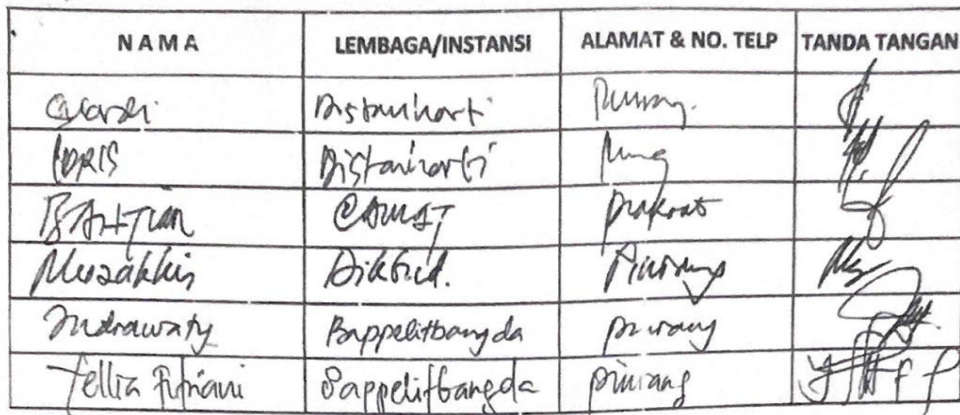 NAMA LEMBAGA/INSTANSI ALAMAT & NO. TELP TANDA TANGAN
Distanhorti
IDRIS Distanhorti
BAHTIAR CAMAT
Muzakkir Dikbud. Pinrang
Indrawaty Bappelitbangda pinrang
Fellia Fitriani Bappelitbangda pinrang